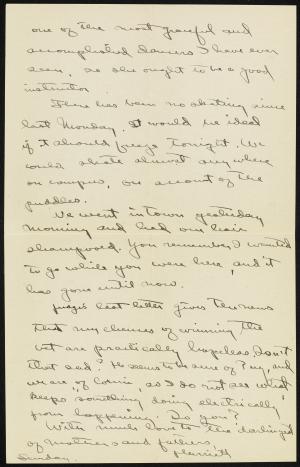 one of the most graceful and
accomplished dancers I have ever
seen, so she ought to be a good
instructor.
There has been no skating since
last Monday. It would be ideal
if it should freeze tonight. We
could skate almost anywhere
on campus, on account of the
puddles.
We went in town yesterday
morning and had our hair
shampooed. You remember, I wanted
to go while you were here, and it
has gone until now.
last letter gives the news
that my chances of winning the
bet are practically hopeless. Isn't
that sad? He seems to be sure of
and
we are of so I do not see what
keeps something doing electrically
from happening. Do you?
With much love to the "darlingest
of mothers and fathers,
Harriett
Sunday.